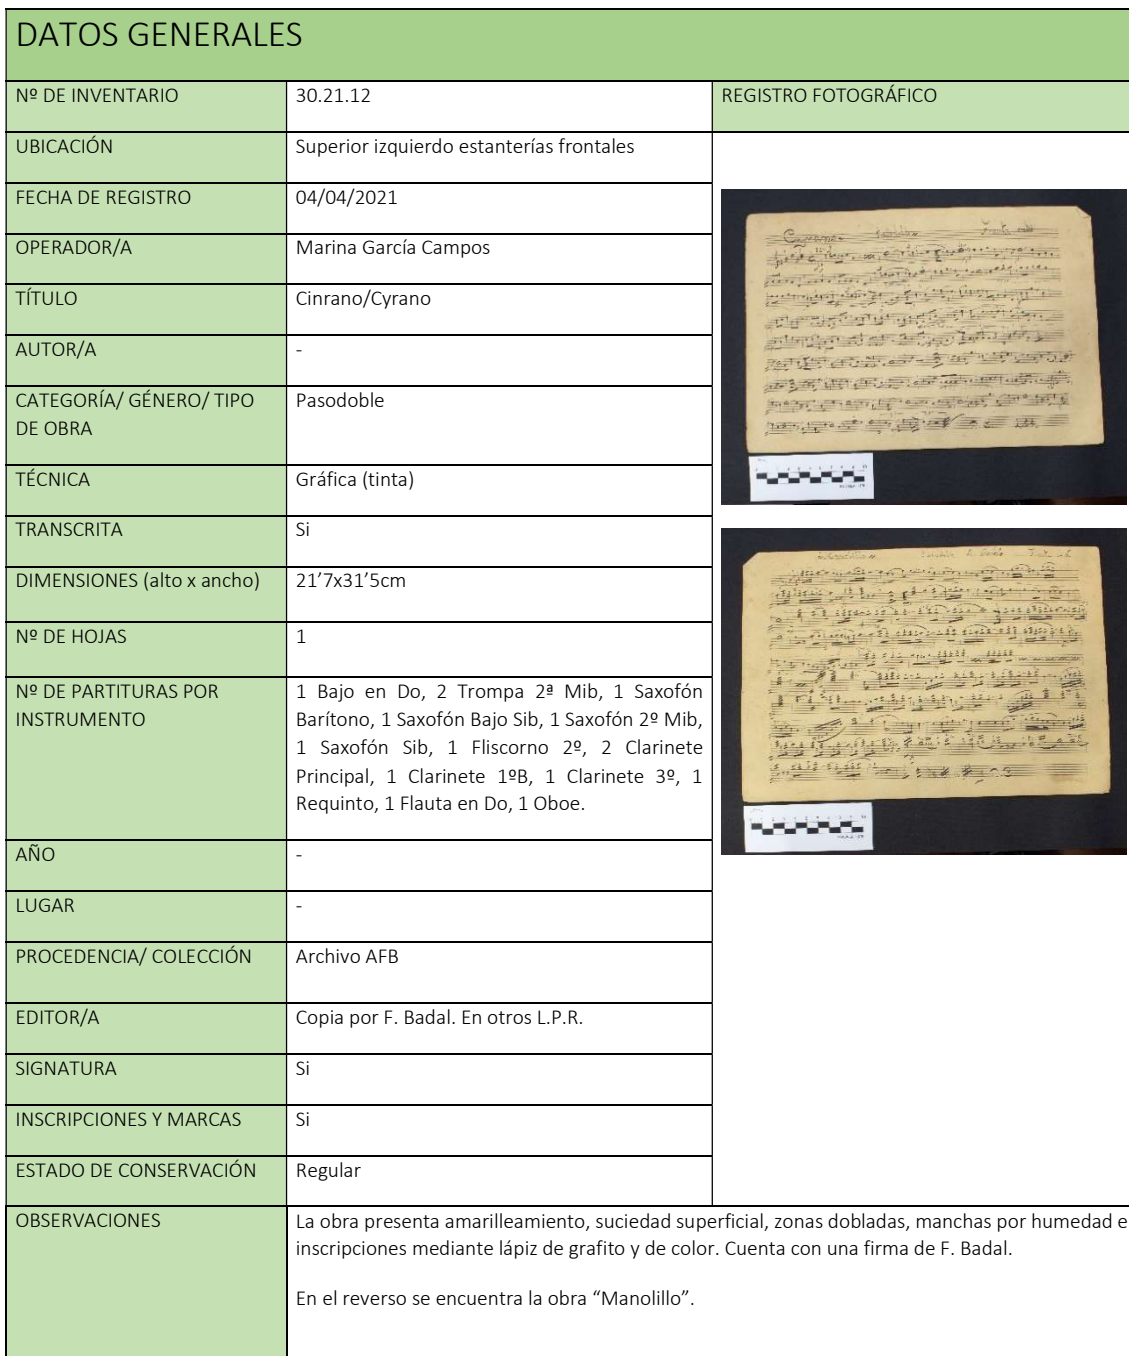 DATOS GENERALES
Nº DE INVENTARIO
30.21.12
REGISTRO FOTOGRÁFICO
UBICACIÓN
Superior izquierdo estanterías frontales
FECHA DE REGISTRO
04/04/2021
OPERADOR/A
Marina García Campos
TÍTULO
Cinrano/Cyrano
AUTOR/A
-
CATEGORÍA/ GÉNERO/ TIPO
DE OBRA
Pasodoble
TÉCNICA
Gráfica (tinta)
TRANSCRITA
Si
DIMENSIONES (alto x ancho)
21’7x31’5cm
Nº DE HOJAS
1
Nº DE PARTITURAS POR
INSTRUMENTO
1 Bajo en Do, 2 Trompa 2ª Mib, 1 Saxofón
Barítono, 1 Saxofón Bajo Sib, 1 Saxofón 2º Mib,
1 Saxofón Sib, 1 Fliscorno 2º, 2 Clarinete
Principal, 1 Clarinete 1ºB, 1 Clarinete 3º, 1
Requinto, 1 Flauta en Do, 1 Oboe.
AÑO
-
LUGAR
-
PROCEDENCIA/ COLECCIÓN
Archivo AFB
EDITOR/A
Copia por F. Badal. En otros L.P.R.
SIGNATURA
Si
INSCRIPCIONES Y MARCAS
Si
ESTADO DE CONSERVACIÓN
Regular
OBSERVACIONES
La obra presenta amarilleamiento, suciedad superficial, zonas dobladas, manchas por humedad e
inscripciones mediante lápiz de grafito y de color. Cuenta con una firma de F. Badal.
En el reverso se encuentra la obra “Manolillo”.